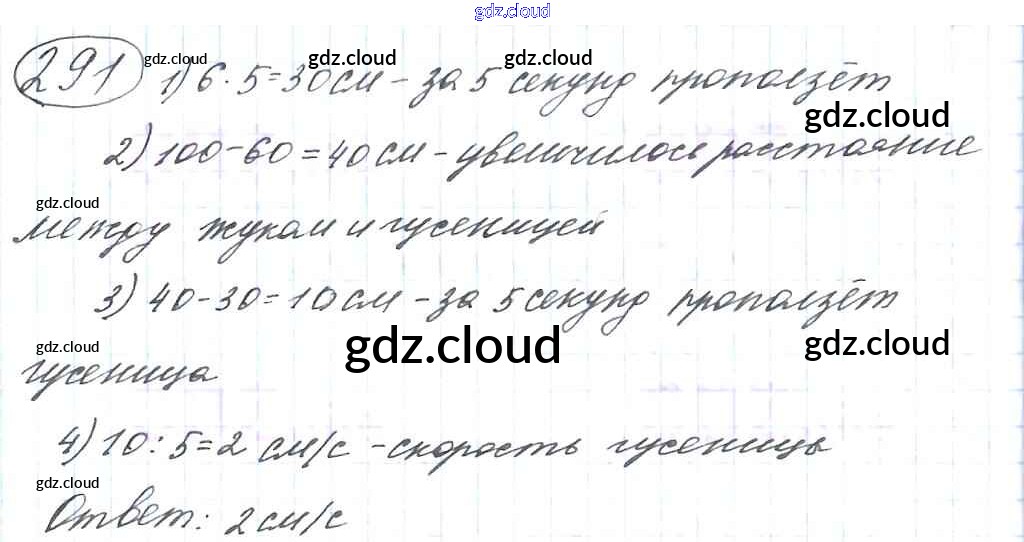 gdz.cloud
291 1) 6·5=30см - за 5 секунд проползёт
gdz.cloud gdz.cloud gdz.cloud
gdz.cloud
2) 100-60=40см - увеличилось расстояние
gdz.cloud
между жуком и гусеницей
3) 40-30=10см - за 5 секунд проползёт
gdz.cloud gdz.cloud gdz.cloud
гусеница
4) 10:5=2 см/с - скорость гусеницы
gdz.cloud
Ответ: 2см/с